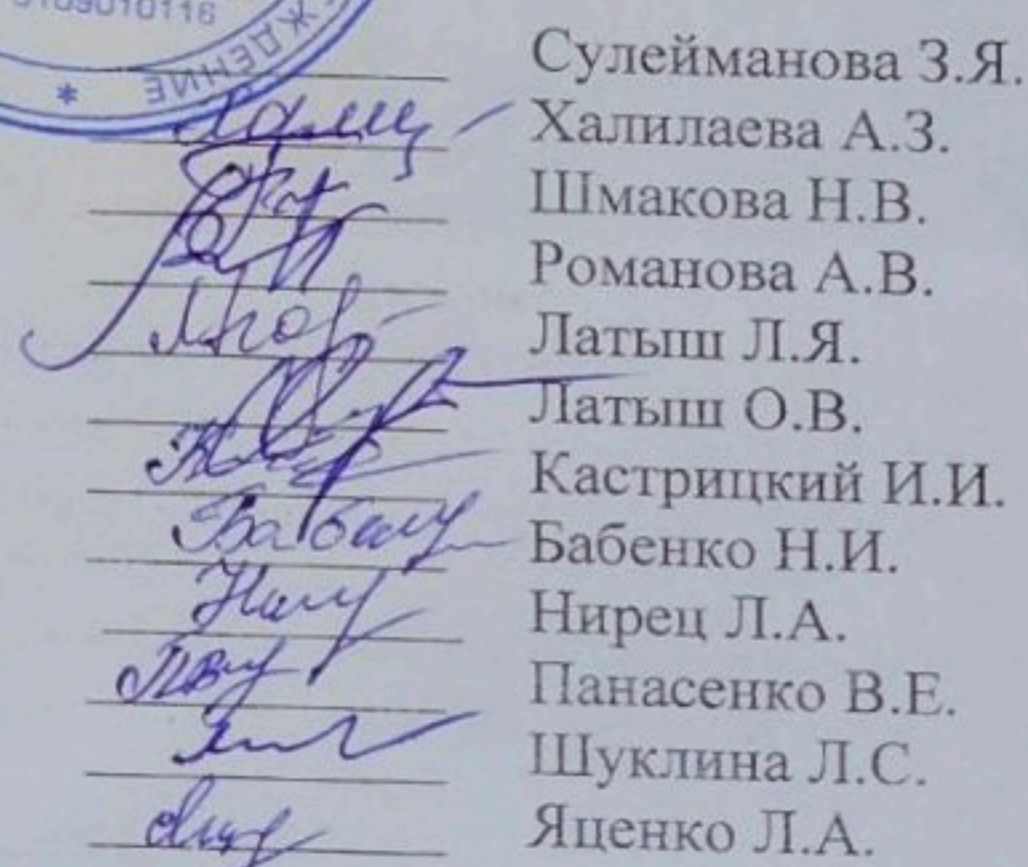 9109010116
ЖДЕНИЕ *
Сулейманова З.Я.
Халилаева А.З.
Шмакова Н.В.
Романова А.В.
Латыш Л.Я.
Латыш О.В.
Кастрицкий И.И.
Бабенко Н.И.
Нирец Л.А.
Панасенко В.Е.
Шуклина Л.С.
Яценко Л.А.